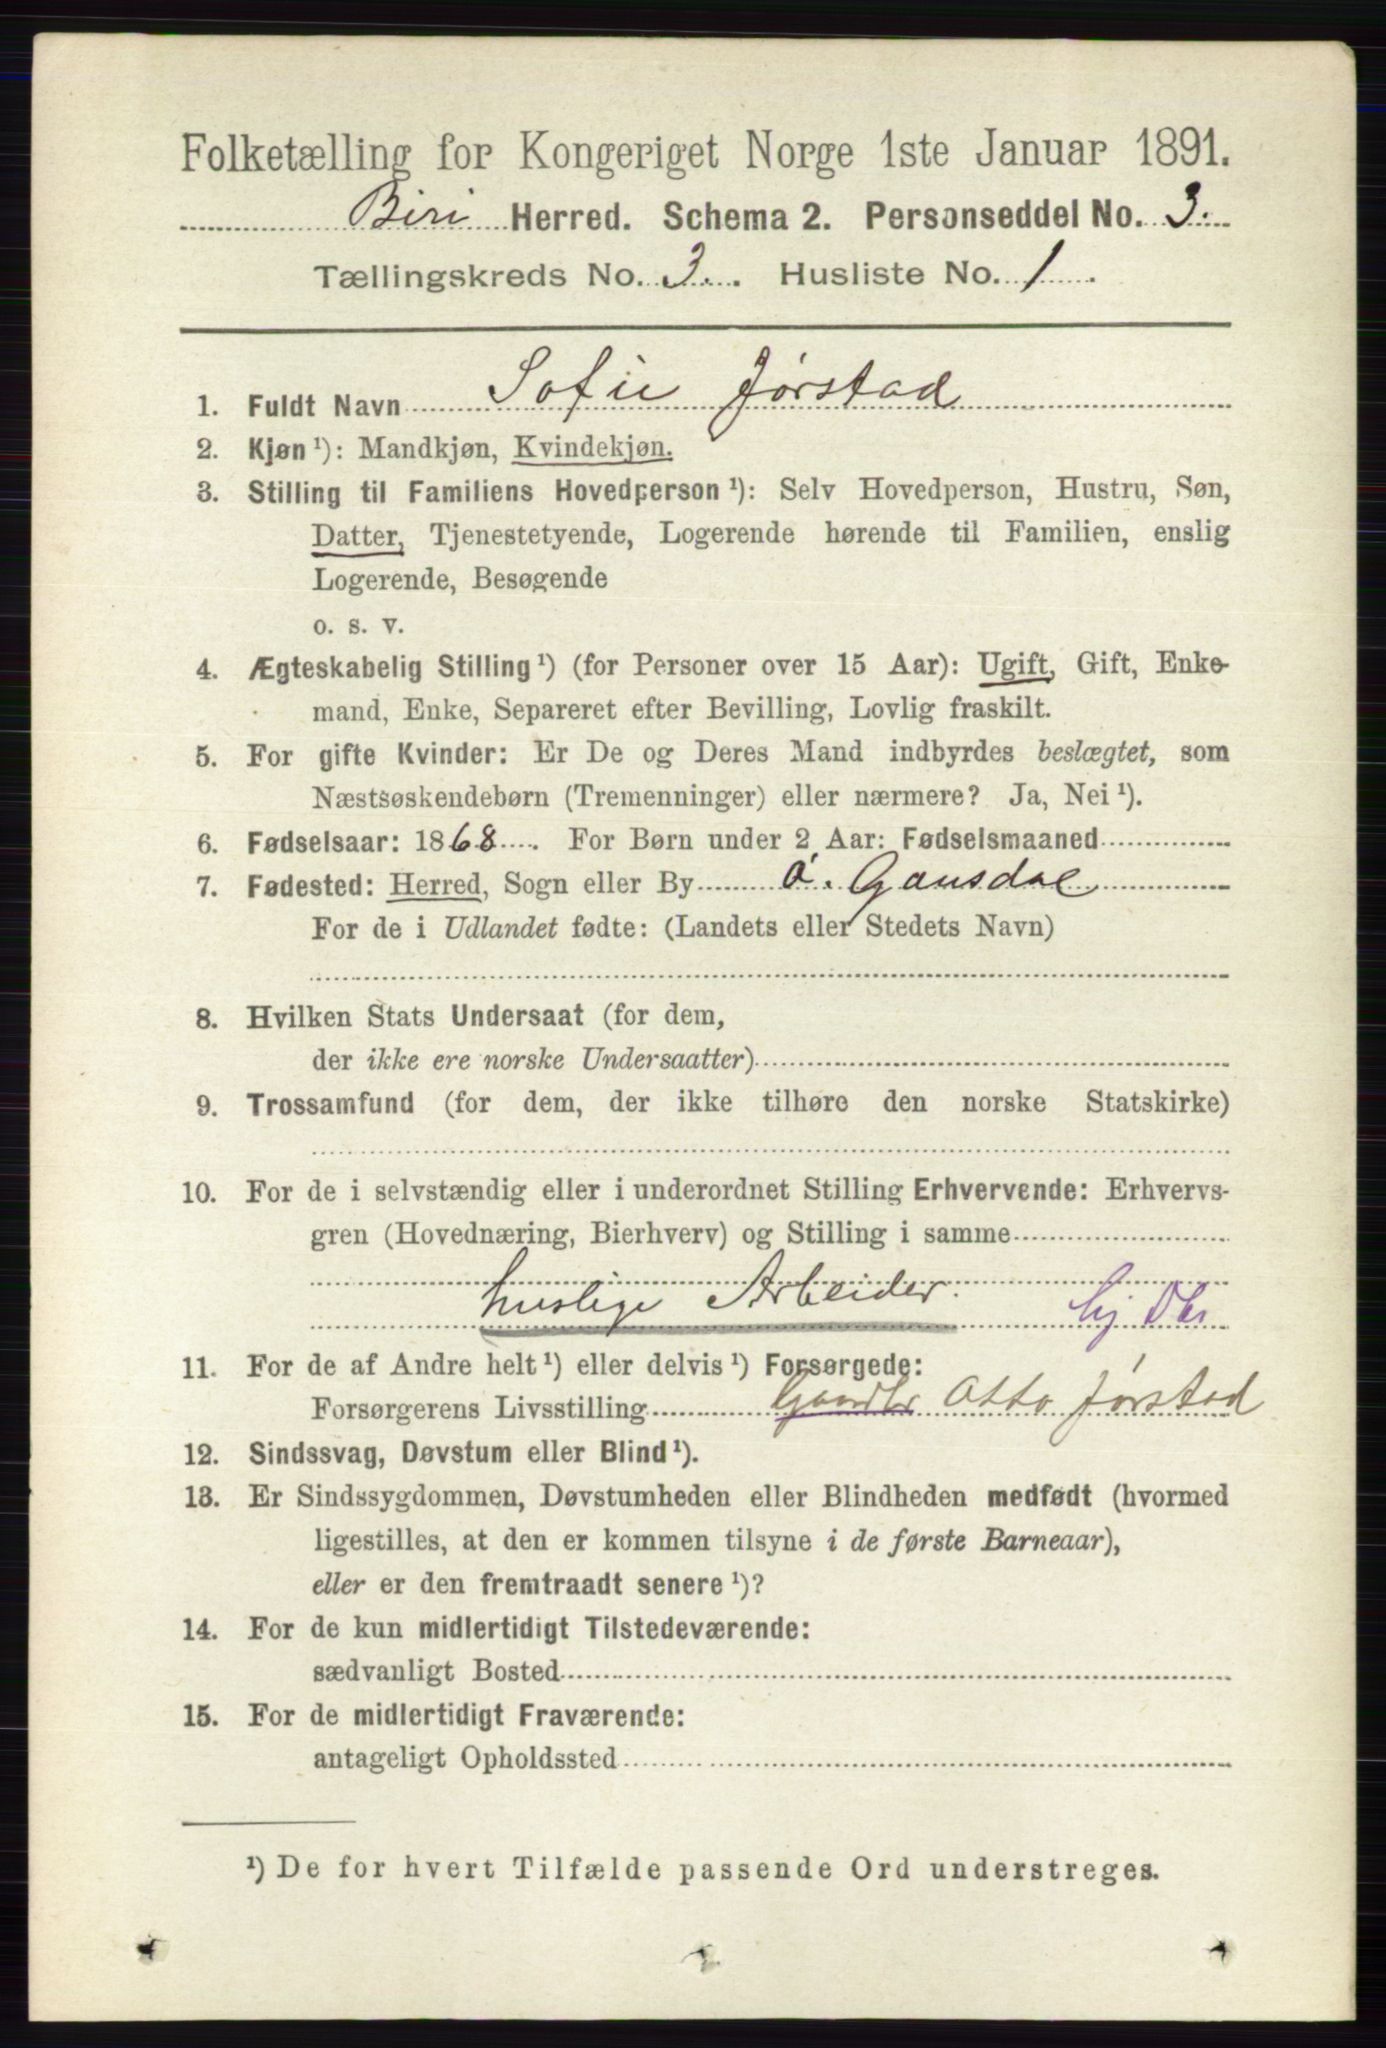 Folketælling for Kongeriget Norge 1ste Januar 1891.
Biri Herred. Schema 2. Personseddel No. 3.
Tællingskreds No. 3. Husliste No. 1.
1. Fuldt Navn Sofie Jørstad
2. Kjøn ¹): Mandkjøn, Kvindekjøn.
3. Stilling til Familiens Hovedperson ¹): Selv Hovedperson, Hustru, Søn,
Datter, Tjenestetyende, Logerende hørende til Familien, enslig
Logerende, Besøgende
o. s. v.
4. Ægteskabelig Stilling ¹) (for Personer over 15 Aar): Ugift, Gift, Enke-
mand, Enke, Separeret efter Bevilling, Lovlig fraskilt.
5. For gifte Kvinder: Er De og Deres Mand indbyrdes beslægtet, som
Næstsøskendebørn (Tremenninger) eller nærmere? Ja, Nei ¹).
6. Fødselsaar: 1868. For Børn under 2 Aar: Fødselsmaaned
7. Fødested: Herred, Sogn eller By Ø. Gausdal
For de i Udlandet fødte: (Landets eller Stedets Navn)
8. Hvilken Stats Undersaat (for dem,
der ikke ere norske Undersaatter)
9. Trossamfund (for dem, der ikke tilhøre den norske Statskirke)
10. For de i selvstændig eller i underordnet Stilling Erhvervende: Erhvervs-
gren (Hovednæring, Bierhverv) og Stilling i samme
huslige Arbeider.
11. For de af Andre helt ¹) eller delvis ¹) Forsørgede:
Forsørgerens Livsstilling Gaardbr Otto Jørstad
12. Sindssvag, Døvstum eller Blind ¹).
13. Er Sindssygdommen, Døvstumheden eller Blindheden medfødt (hvormed
ligestilles, at den er kommen tilsyne i de første Barneaar),
eller er den fremtraadt senere ¹)?
14. For de kun midlertidigt Tilstedeværende:
sædvanligt Bosted
15. For de midlertidigt Fraværende:
antageligt Opholdssted
¹) De for hvert Tilfælde passende Ord understreges.